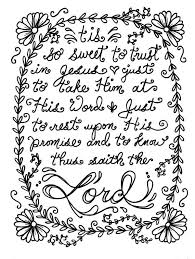 'tis
so sweet to trust
in Jesus ♥ just
to take Him at
His Word ♥ Just
to rest upon His
promise and to know
thus saith the
Lord